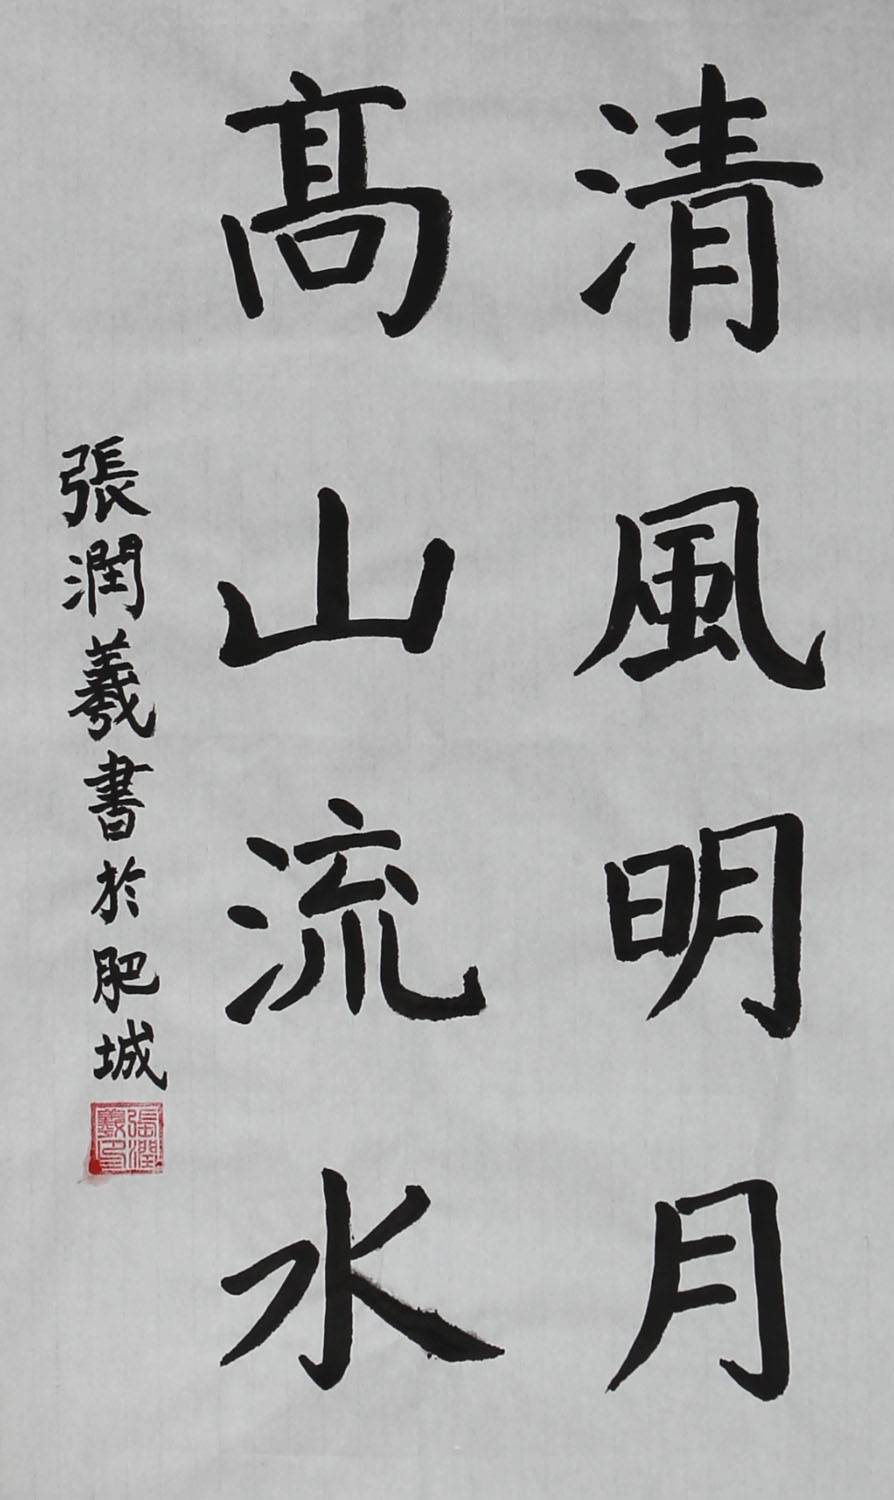 清風明月
髙山流水
張潤羲書於肥城
張潤羲印